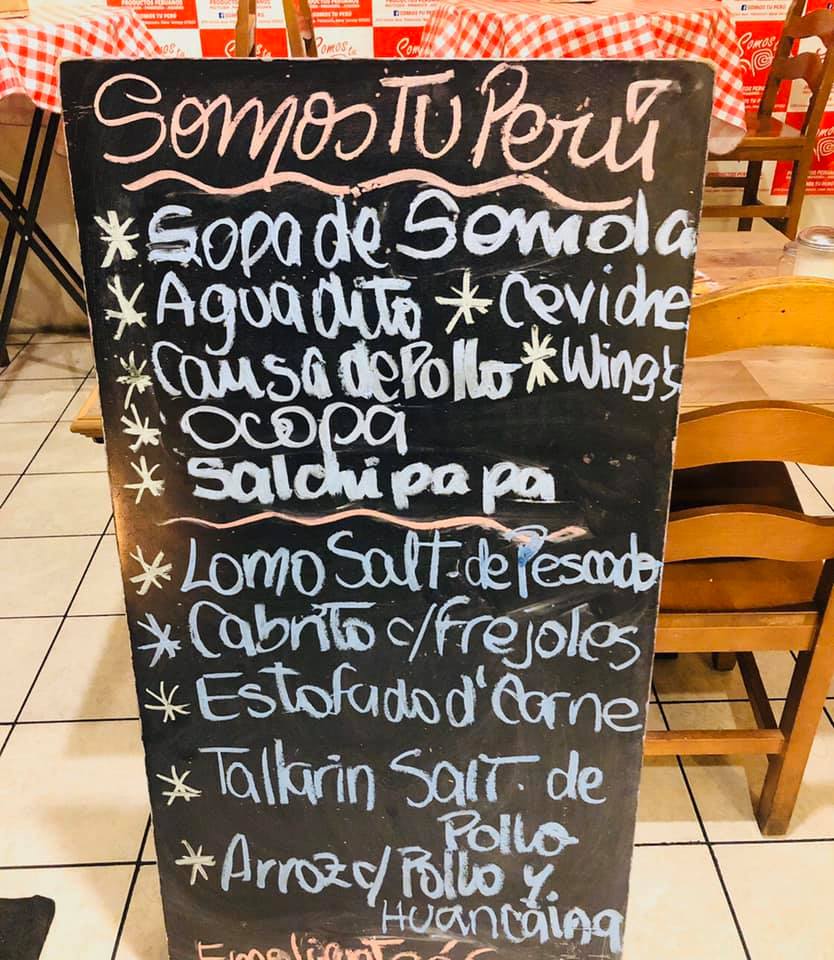 PRODUCTOS PERUANOS
SOMOS TU PERÚ
Somos tu
SomosTuPerú
* Sopa de Semola
* Aguadito * Ceviche
* Causa de Pollo * Wing's
* Ocopa
* Salchipapa
* Lomo Salt. de Pescado
* Cabrito c/ Frejoles
* Estofado d' Carne
* Tallarin Salt. de
Pollo
* Arroz c/ Pollo y
Huancaina